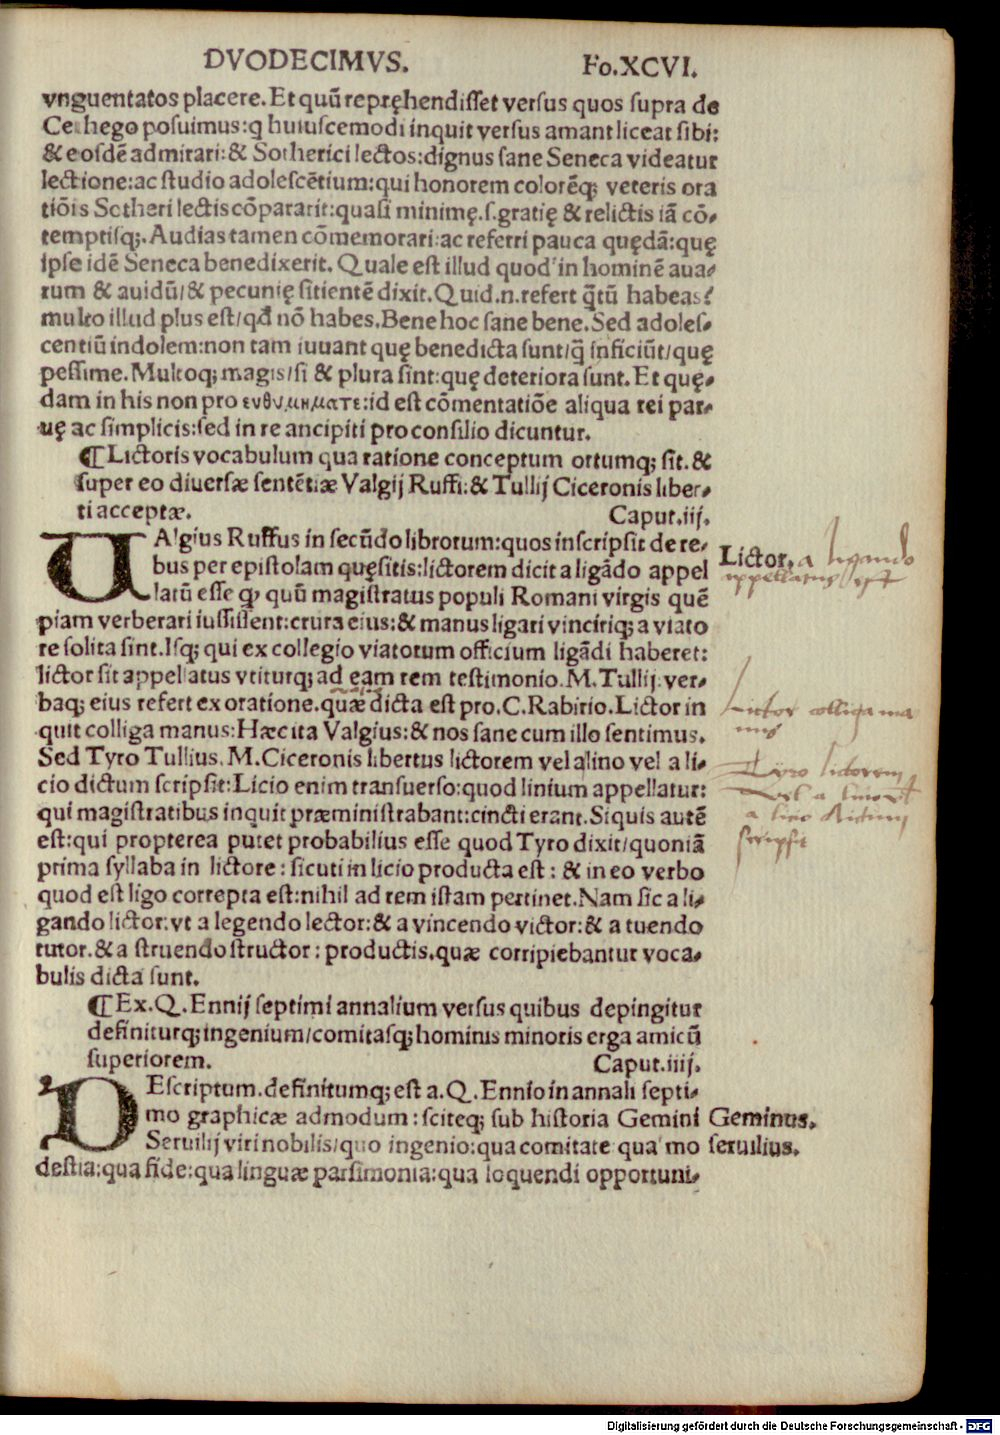 DVODECIMVS. Fo.XCVI.
vnguentatos placere. Et quũ repręhendisset versus quos supra de
Cethego posuimus: q huiuscemodi inquit versus amant liceat sibi:
& eosdẽ admirari: & Sotherici lectos: dignus sane Seneca videatur
lectione: ac studio adolescẽtium: qui honorem colorẽq; veteris ora
tiõis Sotheri lectis cõpararit: quasi minimę.s.gratię & relictis iã cõ-
temptisq;. Audias tamen cõmemorari: ac referri pauca quędã: quę
ipse idẽ Seneca benedixerit. Quale est illud quod in hominẽ aua-
rum & auidũ/ & pecunię sitientẽ dixit. Quid.n.refert q̃tũ habeas?
multo illud plus est/ qđ nõ habes. Bene hoc sane bene. Sed adoles-
centiũ indolem: non tam iuuant quę benedicta sunt/ q̃ inficiũt/ quę
pessime. Multoq; magis/ si & plura sint: quę deteriora sunt. Et quę-
dam in his non pro ενθυμηματε: id est cõmentatiõe aliqua rei par-
uę ac simplicis: sed in re ancipiti pro consilio dicuntur.
¶ Lictoris vocabulum qua ratione conceptum ortumq; sit. &
super eo diuersæ sentẽtiæ Valgij Ruffi: & Tullij Ciceronis liber-
ti acceptæ. Caput.iij.
VAlgius Ruffus in secũdo librorum: quos inscripsit de re-
bus per epistolam quęsitis: lictorem dicit a ligãdo appel
latũ esse q quũ magistratus populi Romani virgis quẽ
piam verberari iussissent: crura eius: & manus ligari vinciriq; a viato
re solita sint. Isq; qui ex collegio viatorum officium ligãdi haberet:
lictor sit appellatus vtiturq; ad eam rem testimonio. M. Tullij. ver-
baq; eius refert ex oratione. quæ dicta est pro. C. Rabirio. Lictor in
quit colliga manus: Hæc ita Valgius: & nos sane cum illo sentimus.
Sed Tyro Tullius. M. Ciceronis libertus lictorem vel a lino vel a li-
cio dictum scripsit: Licio enim transuerso: quod linium appellatur:
qui magistratibus inquit præministrabant: cincti erant. Siquis autẽ
est: qui propterea putet probabilius esse quod Tyro dixit/ quoniã
prima syllaba in lictore: sicuti in licio producta est: & in eo verbo
quod est ligo correpta est: nihil ad rem istam pertinet. Nam sic a li-
gando lictor: vt a legendo lector: & a vincendo victor: & a tuendo
tutor. & a struendo structor: productis. quæ corripiebantur voca-
bulis dicta sunt.
¶ Ex. Q. Ennij septimi annalium versus quibus depingitur
definiturq; ingenium/ comitasq; hominis minoris erga amicũ
superiorem. Caput.iiij.
DEscriptum. definitumq; est a. Q. Ennio in annali septi-
mo graphicæ admodum: sciteq; sub historia Gemini
Seruilij viri nobilis/ quo ingenio: qua comitate qua mo
destia: qua fide: qua linguæ parsimonia: qua loquendi opportuni-
Lictor. a ligando
appellatus est
Lictor colliga ma
nus
Tyro lictorem
vel a lino vel
a licio dictum
scripsit
Geminus.
seruilius.
Digitalisierung gefördert durch die Deutsche Forschungsgemeinschaft - DFG